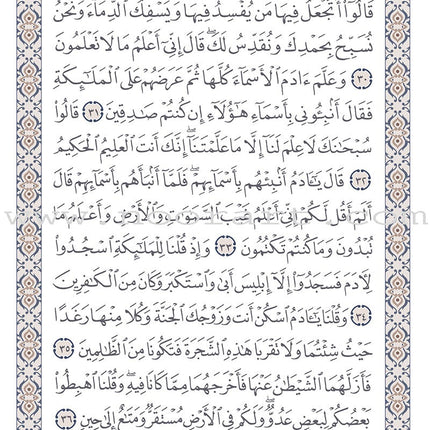 قَالُوٓا۟ أَتَجْعَلُ فِيهَا مَن يُفْسِدُ فِيهَا وَيَسْفِكُ ٱلدِّمَآءَ وَنَحْنُ
نُسَبِّحُ بِحَمْدِكَ وَنُقَدِّسُ لَكَ ۖ قَالَ إِنِّىٓ أَعْلَمُ مَا لَا تَعْلَمُونَ
٣٠ وَعَلَّمَ ءَادَمَ ٱلْأَسْمَآءَ كُلَّهَا ثُمَّ عَرَضَهُمْ عَلَى ٱلْمَلَـٰٓئِكَةِ
فَقَالَ أَنۢبِـُٔونِى بِأَسْمَآءِ هَـٰٓؤُلَآءِ إِن كُنتُمْ صَـٰدِقِينَ ٣١ قَالُوا۟
سُبْحَـٰنَكَ لَا عِلْمَ لَنَآ إِلَّا مَا عَلَّمْتَنَآ ۖ إِنَّكَ أَنتَ ٱلْعَلِيمُ ٱلْحَكِيمُ
٣٢ قَالَ يَـٰٓـَٔادَمُ أَنۢبِئْهُم بِأَسْمَآئِهِمْ ۖ فَلَمَّآ أَنۢبَأَهُم بِأَسْمَآئِهِمْ قَالَ
أَلَمْ أَقُل لَّكُمْ إِنِّىٓ أَعْلَمُ غَيْبَ ٱلسَّمَـٰوَٰتِ وَٱلْأَرْضِ وَأَعْلَمُ مَا
تُبْدُونَ وَمَا كُنتُمْ تَكْتُمُونَ ٣٣ وَإِذْ قُلْنَا لِلْمَلَـٰٓئِكَةِ ٱسْجُدُوا۟
لِـَٔادَمَ فَسَجَدُوٓا۟ إِلَّآ إِبْلِيسَ أَبَىٰ وَٱسْتَكْبَرَ وَكَانَ مِنَ ٱلْكَـٰفِرِينَ
٣٤ وَقُلْنَا يَـٰٓـَٔادَمُ ٱسْكُنْ أَنتَ وَزَوْجُكَ ٱلْجَنَّةَ وَكُلَا مِنْهَا رَغَدًا
حَيْثُ شِئْتُمَا وَلَا تَقْرَبَا هَـٰذِهِ ٱلشَّجَرَةَ فَتَكُونَا مِنَ ٱلظَّـٰلِمِينَ ٣٥
فَأَزَلَّهُمَا ٱلشَّيْطَـٰنُ عَنْهَا فَأَخْرَجَهُمَا مِمَّا كَانَا فِيهِ ۖ وَقُلْنَا ٱهْبِطُوا۟
بَعْضُكُمْ لِبَعْضٍ عَدُوٌّ ۖ وَلَكُمْ فِى ٱلْأَرْضِ مُسْتَقَرٌّ وَمَتَـٰعٌ إِلَىٰ حِينٍ ٣٦